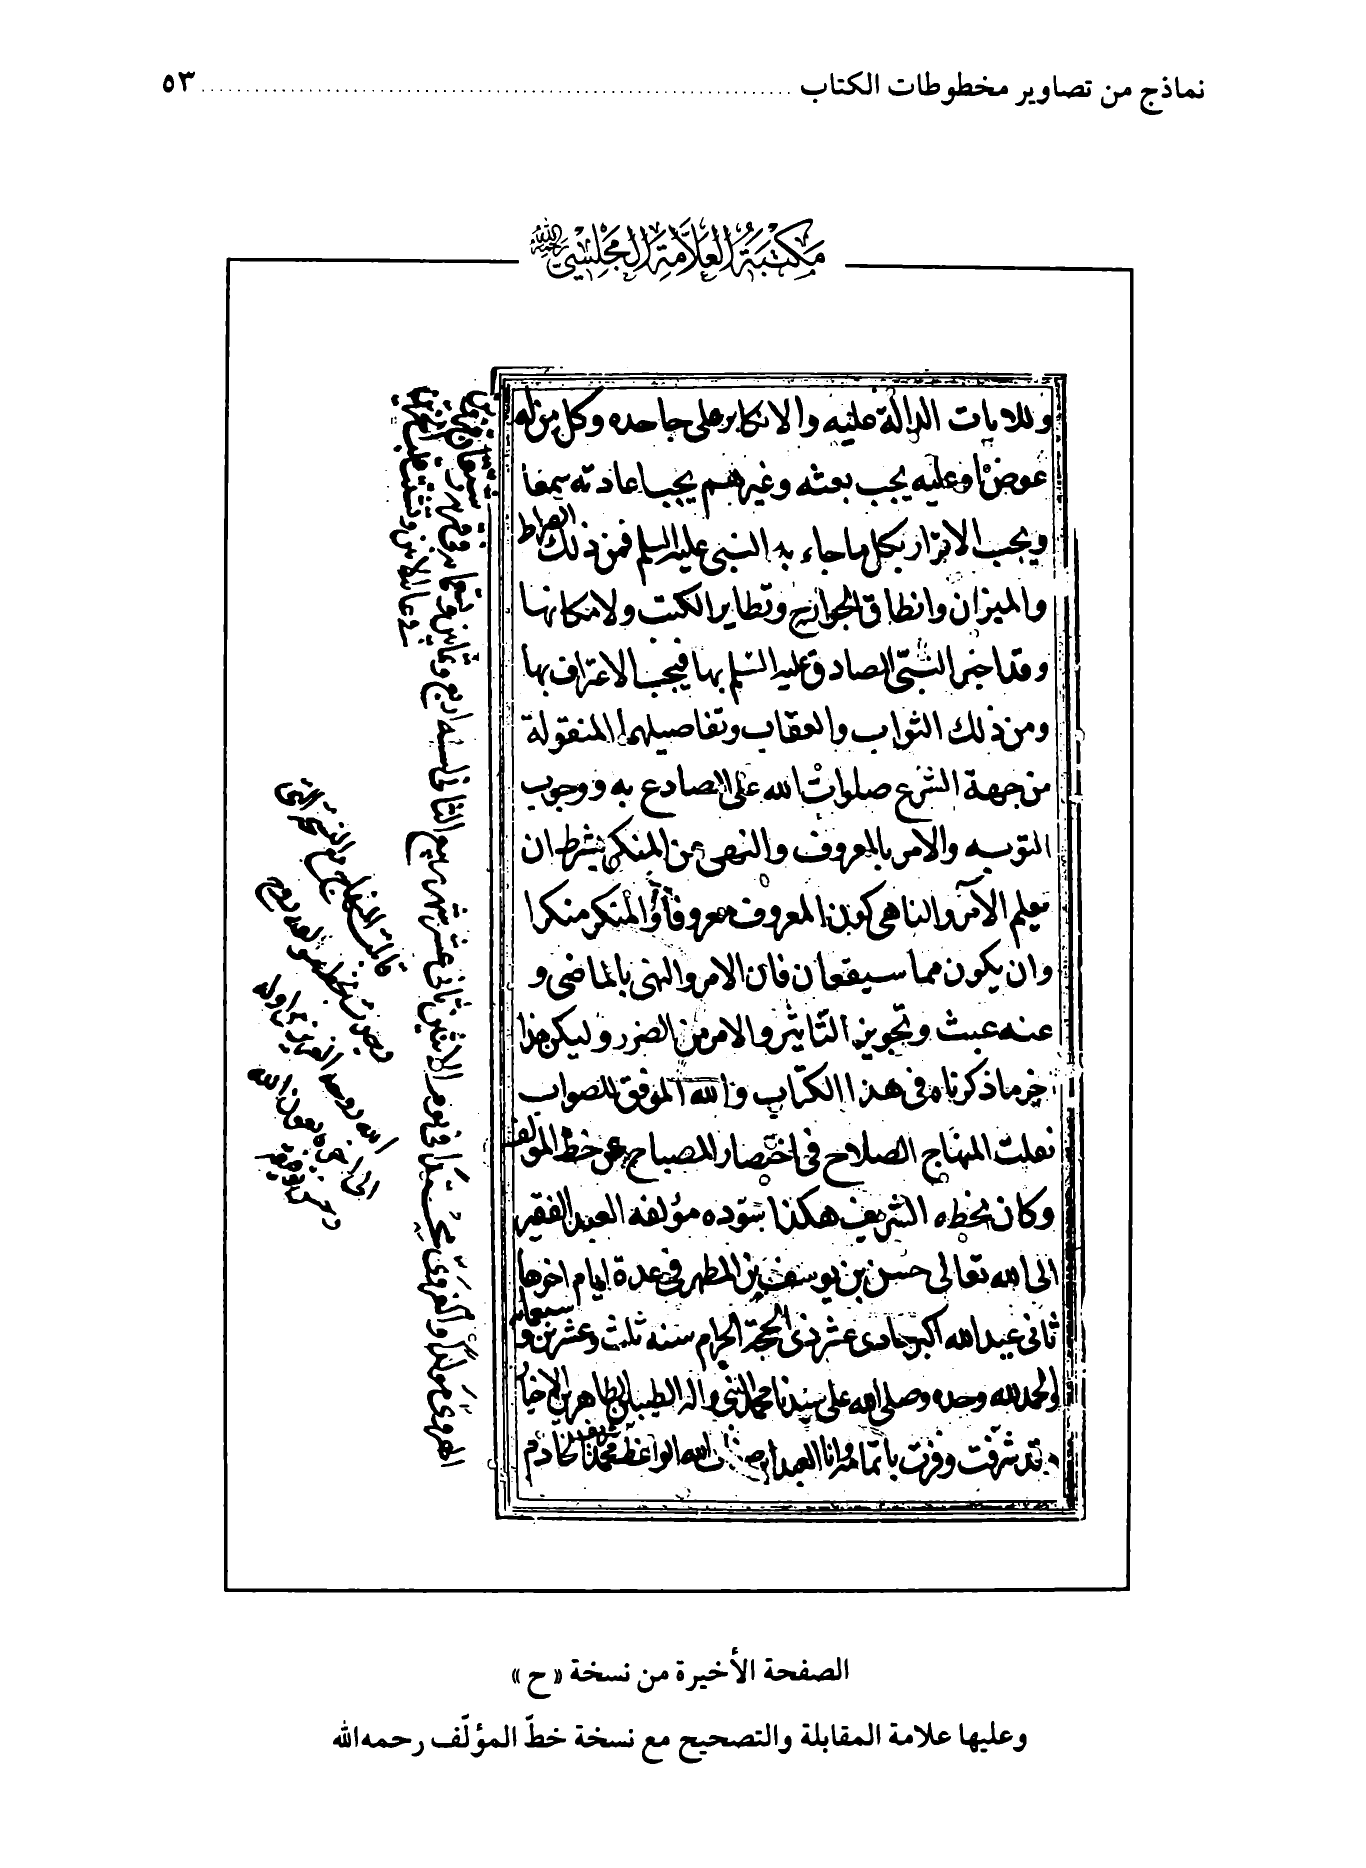 نماذج من تصاوير مخطوطات الكتاب ........ ٥٣
مكتبة العلامة المجلسي رحمه الله
وللايات الدالة عليه والانكار على جاحده وكل من له
عوض او عليه يجب بعثه وغيرهم يجب اعادته سمعا
ويجب الاقرار بكل ما جاء به النبي عليه السلم فمن ذلك الصراط
والميزان وانطاق الجوارح وتطاير الكتب ولامكانها
وقد اخبر النبي الصادق عليه السلم بها فيجب الاعتراف بها
ومن ذلك الثواب والعقاب وتفاصيلهما المنقولة
من جهة الشرع صلوات الله على الصادع به ووجوب
التوبه والامر بالمعروف والنهى عن المنكر بشرط ان
يعلم الآمر والناهى كون المعروف معروفا والمنكر منكرا
وان يكون مما سيقعان فان الامر والنهى بالماضى و
عنه عبث وتجويز التاثير والامن من الضرر وليكن هذا
اخر ما ذكرناه فى هذا الكتاب والله الموفق للصواب
نقلت المنهاج الصلاح فى اختصار المصباح عن خط المؤلف
وكان بخطه الشريف هكذا سوده مؤلفه العبد الفقير
الى الله تعالى حسن بن يوسف بن المطهر فى عدة ايام اخرها
ثانى عيد الله اكبر حادى عشر ذى الحجة الحرام سنه ثلث وعشرين و سبعمائه
والحمد لله وحده وصلى الله على سيدنا محمد النبى واله الطيبين الطاهرين الاخيار
قد شرفت وفزت باتمامه وانا العبد الله الواعظ محمد خادم
الهروى مولدا والغروى محتدا فى يوم الاثنين ثانى عشر شهر ربيع الثانى لسنه اربع وثمانين وتسعمائه
قابلت المنهاج مع النسخة التى
وجدت بخط مؤلفه روح
الله روحه العزيز من اوله
الى اخره بعون الله
وحسن توفيقه
الصفحة الأخيرة من نسخة « ح »
وعليها علامة المقابلة والتصحيح مع نسخة خطّ المؤلّف رحمه الله